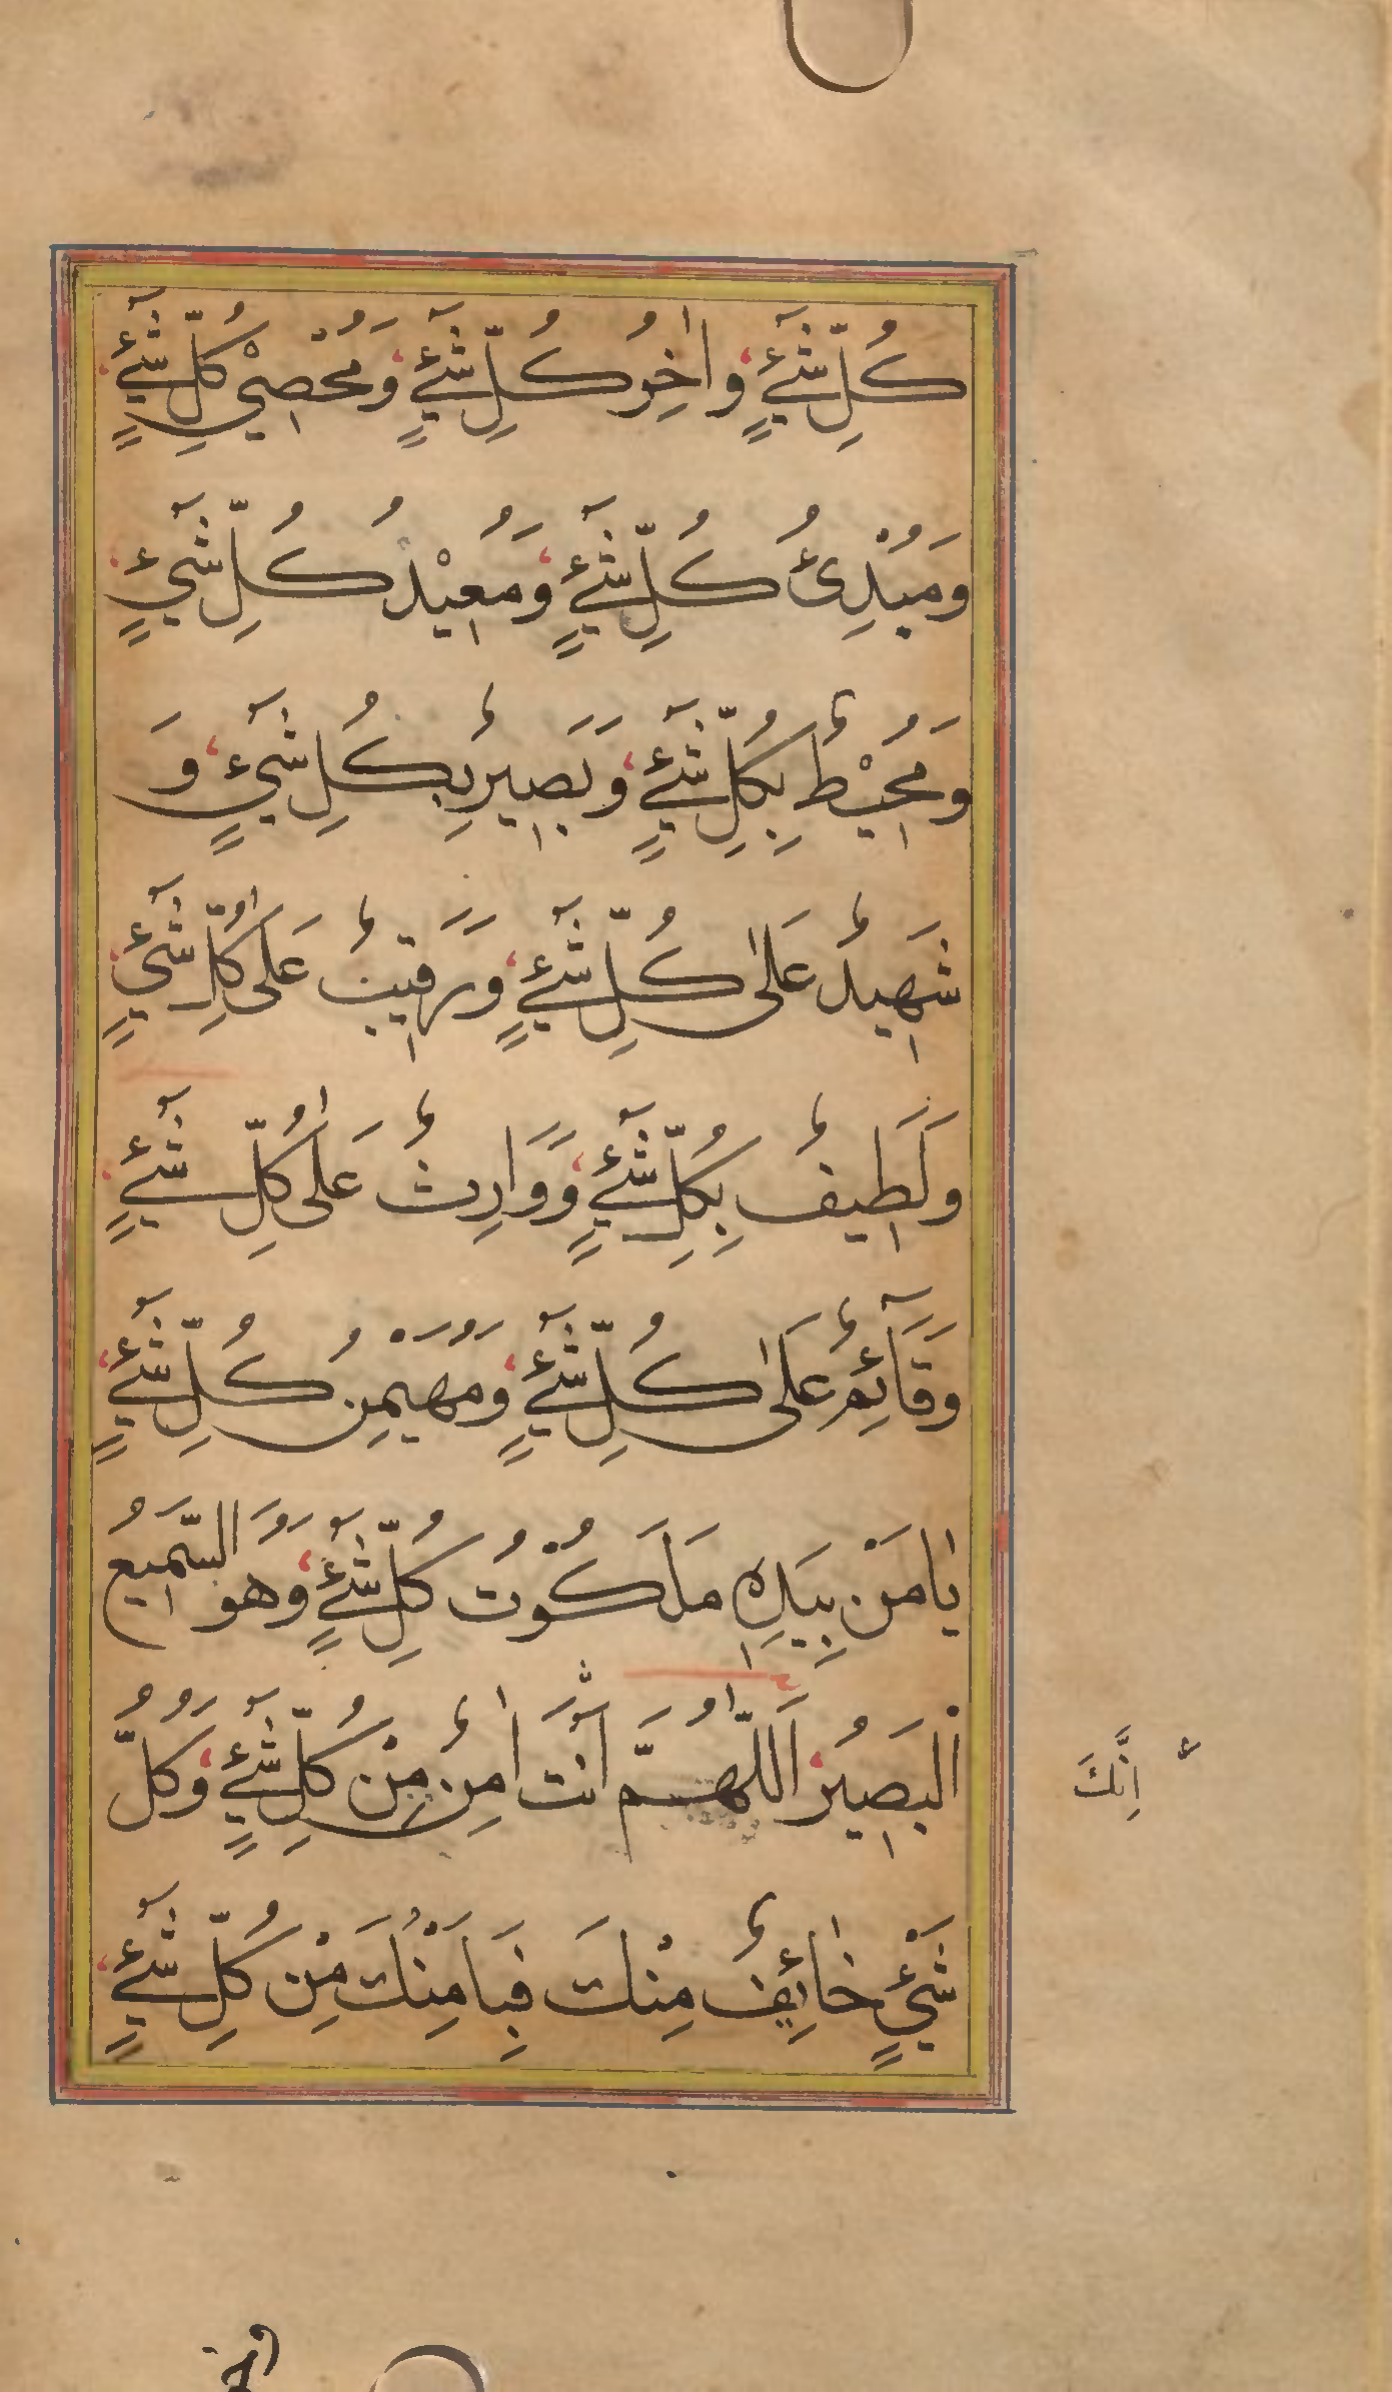 كُلِّ شَيْءٍ وَاٰخِرُ كُلِّ شَيْءٍ وَمُحْصِيْ كُلِّ شَيْءٍ
وَمُبْدِئُ كُلِّ شَيْءٍ وَمُعِيْدُ كُلِّ شَيْءٍ
وَمُحِيْطٌ بِكُلِّ شَيْءٍ وَبَصِيرٌ بِكُلِّ شَيْءٍ وَ
شَهِيدٌ عَلٰى كُلِّ شَيْءٍ وَرَقِيبٌ عَلٰى كُلِّ شَيْءٍ
وَلَطِيفٌ بِكُلِّ شَيْءٍ وَوَارِثٌ عَلٰى كُلِّ شَيْءٍ
وَقَآئِمٌ عَلٰى كُلِّ شَيْءٍ وَمُهَيْمِنُ كُلِّ شَيْءٍ
يٰامَنْ بِيَدِهٖ مَلَكُوْتُ كُلِّ شَيْءٍ وَهُوَ السَّمِيعُ
الْبَصِيرُ اَللّٰهُمَّ اَنْتَ اٰمِنٌ مِنْ كُلِّ شَيْءٍ وَكُلُّ
شَيْءٍ خٰائِفٌ مِنْكَ فَبِاَمْنِكَ مِنْ كُلِّ شَيْءٍ
اِنَّكَ